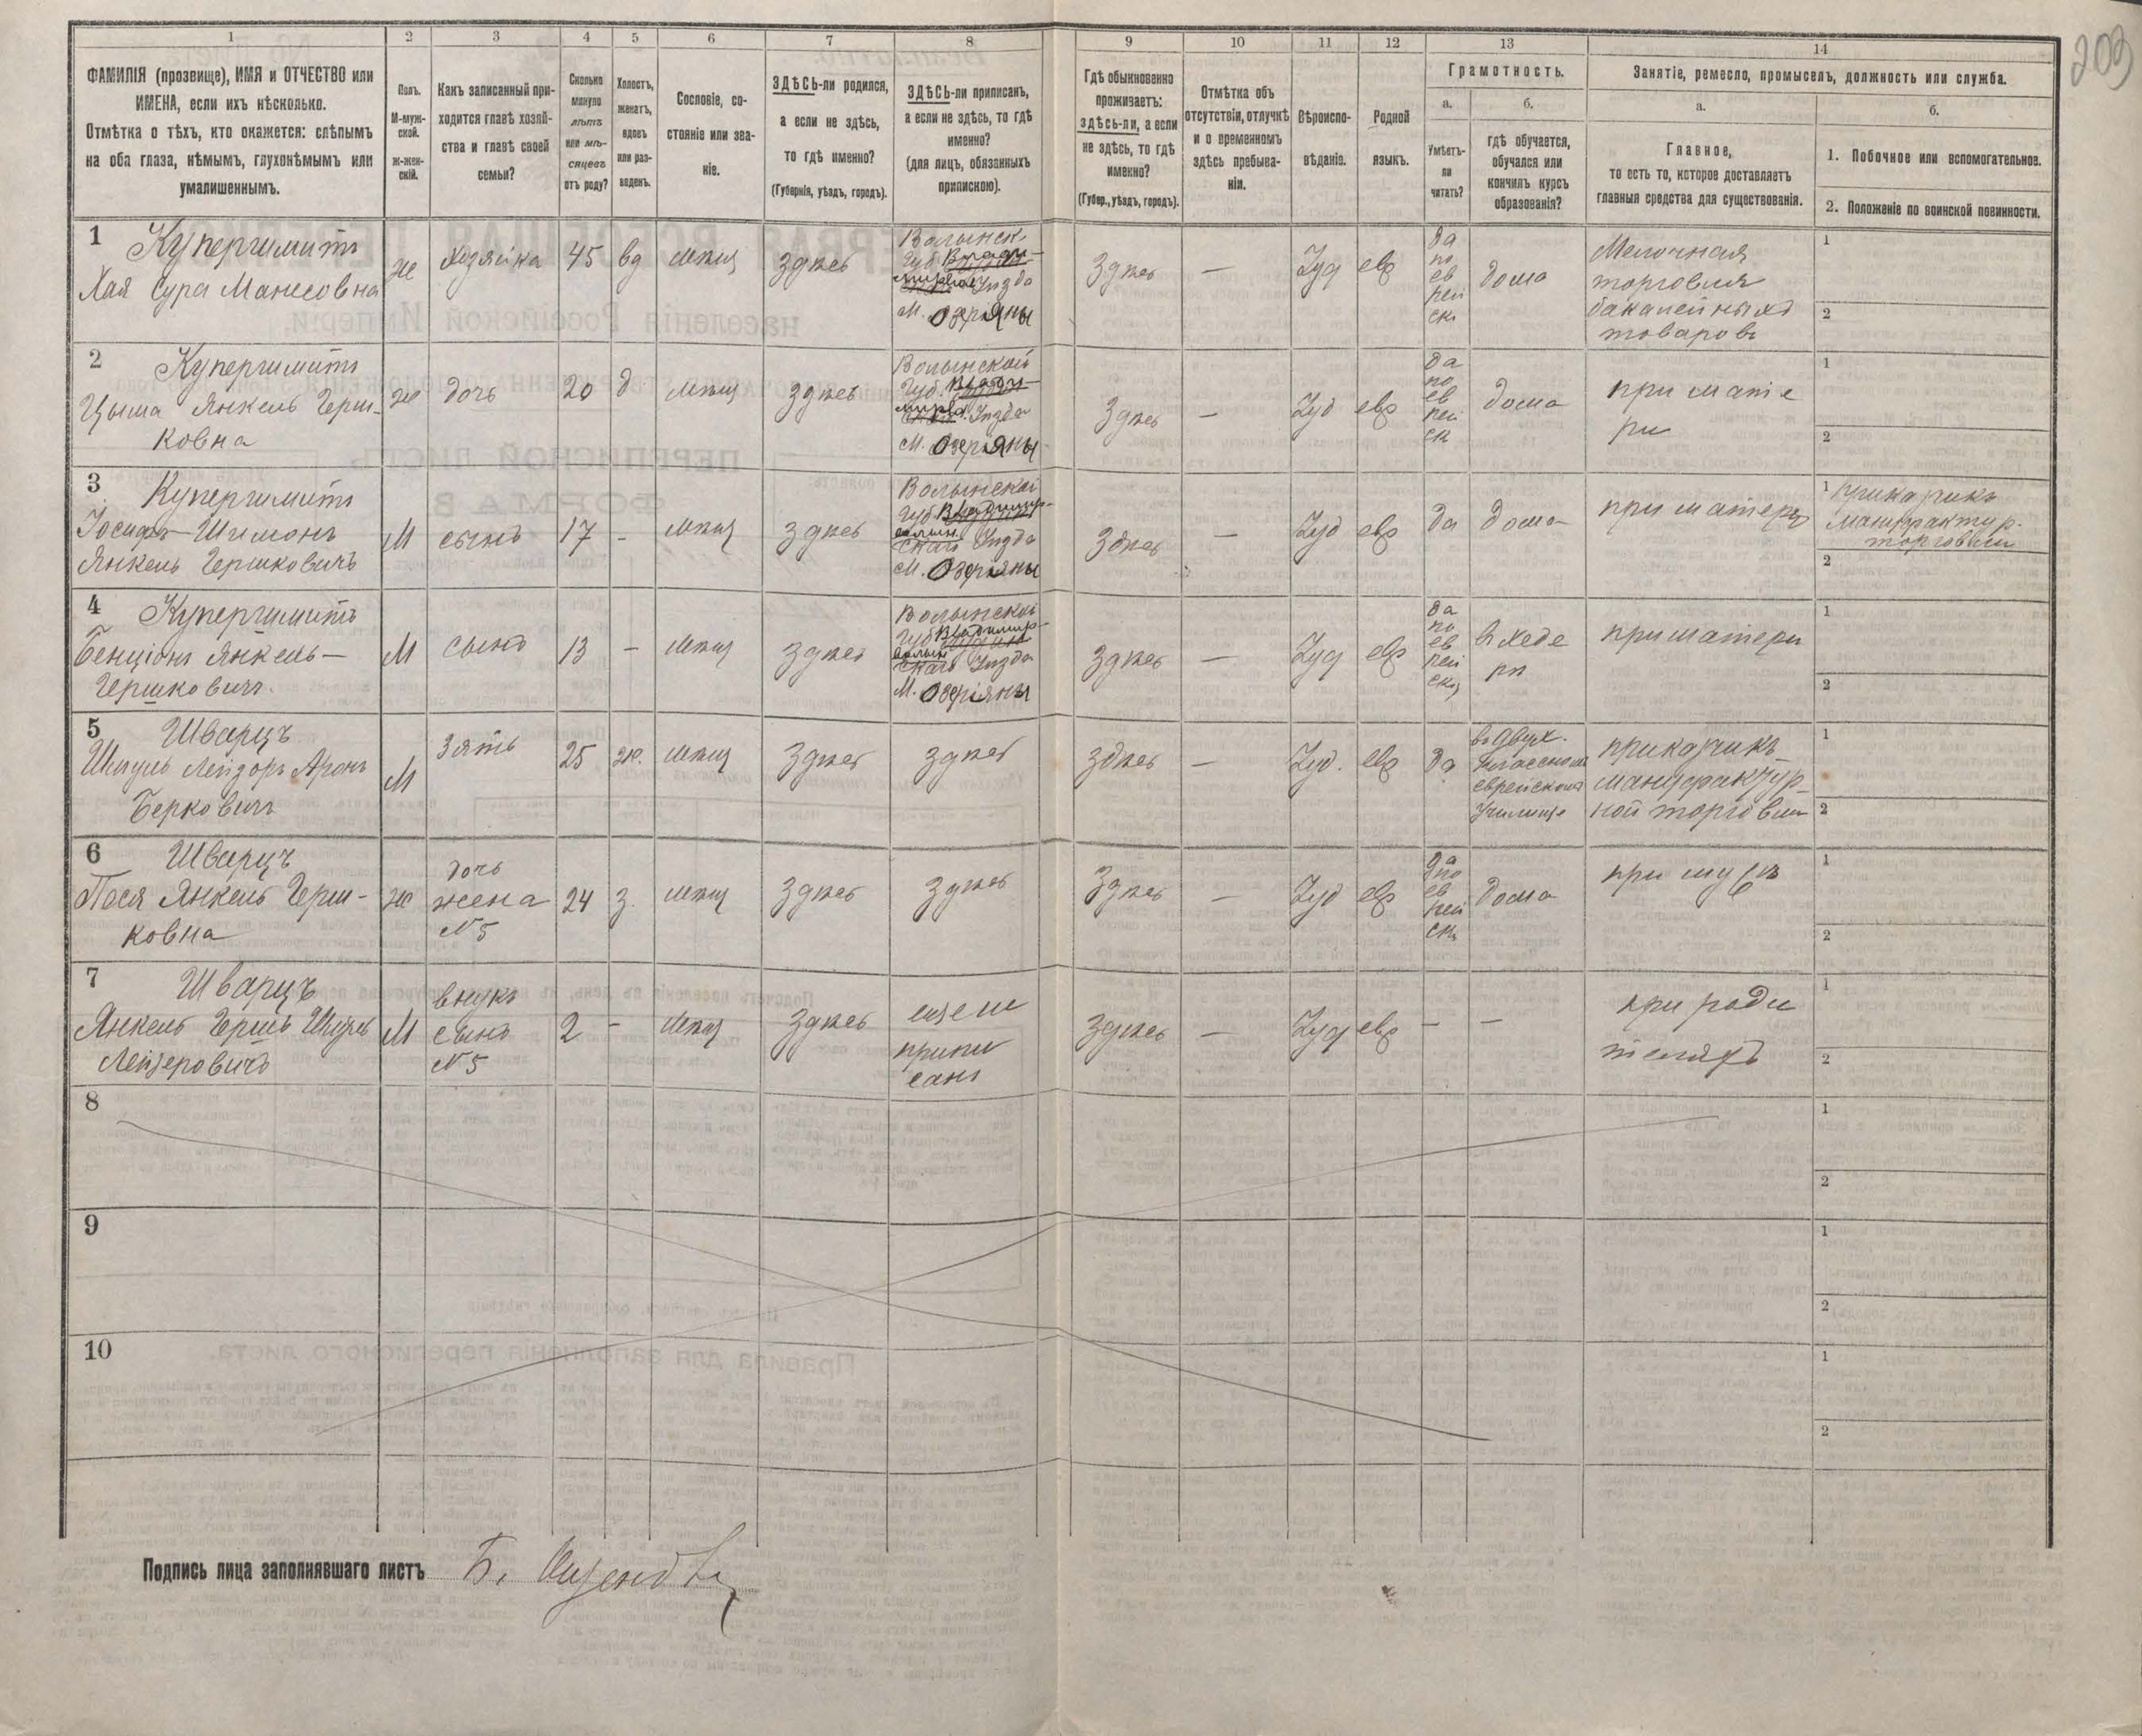 203
1
2
3
4
5
6
7
8
9
10
11
12
13
14
ФАМИЛІЯ (прозвище), ИМЯ и ОТЧЕСТВО или
ИМЕНА, если ихъ нѣсколько.
Отмѣтка о тѣхъ, кто окажется: слѣпымъ
на оба глаза, нѣмымъ, глухонѣмымъ или
умалишеннымъ.
Полъ.
М-муж-
ской.
Ж-жен-
скій.
Какъ записанный при-
ходится главѣ хозяй-
ства и главѣ своей
семьи?
Сколько
минуло
лѣтъ
или мѣ-
сяцевъ
отъ роду?
Холостъ,
женатъ,
вдовъ
или раз-
веденъ.
Сословіе, со-
стояніе или зва-
ніе.
ЗДѢСЬ-ли родился,
а если не здѣсь,
то гдѣ именно?
(Губернія, уѣздъ, городъ).
ЗДѢСЬ-ли приписанъ,
а если не здѣсь, то гдѣ
именно?
(для лицъ, обязанныхъ
припискою).
Гдѣ обыкновенно
проживаетъ:
здѣсь-ли, а если
не здѣсь, то гдѣ
именно?
(Губер., уѣздъ, городъ).
Отмѣтка объ
отсутствіи, отлучкѣ
и о временномъ
здѣсь пребыва-
ніи.
Вѣроиспо-
вѣданіе.
Родной
языкъ.
Грамотность.
а.
Умѣетъ-
ли
читать?
б.
гдѣ обучается,
обучался или
кончилъ курсъ
образованія?
Занятіе, ремесло, промыселъ, должность или служба.
а.
Главное,
то есть то, которое доставляетъ
главныя средства для существованія.
б.
1. Побочное или вспомогательное.
2. Положеніе по воинской повинности.
1 Купершмитъ
Хая Сура Манесовна
ж
хозяйка
45
вд
мѣщ
здѣсь
Волынск.
Губ.
Уѣзда
м. Озеряны
здѣсь
—
Іуд
евр
да
по
ев
рей
ск.
дома
Мелочная
торговля
бакалейныхъ
товаровъ
1
2
2 Купершмитъ
Цыма Янкель Герш-
ковна
ж
дочь
20
д
мѣщ
здѣсь
Волынской
Губ.
Уѣзда
м. Озеряны
здѣсь
—
Іуд
евр
да
по
ев
рей
ск
дома
при мате
ри
1
2
3 Купершмитъ
Іосифъ-Шимонъ
Янкель Гершковичъ
М
сынъ
17
-
мѣщ
здѣсь
Волынской
Губ. Владимир-
волын.
скаго Уѣзда
м. Озеряны
здѣсь
—
Іуд
евр
да
дома
при матери
1 прикащикъ
мануфактур.
торговли
2
4 Купершмитъ
Бенціонъ Янкель-
Гершковичъ.
М
сынъ
13
-
мѣщ
здѣсь
Волынской
Губ Владимир-
волын
скаго Уѣзда
м. Озеряны
здѣсь
—
Іуд
евр
да
по
ев
рей
ск.
въ хеде
рѣ
при матери
1
2
5 Шварцъ
Шмуль Лейзоръ Аронъ
Берковичъ
М
зять
25
ж.
мѣщ
здѣсь
здѣсь
здѣсь
—
Іуд.
евр
да
въ двух.
классномъ
еврейскомъ
училище
прикащикъ
мануфактур-
ной торговли
1
2
6 Шварцъ
Песя Янкель Герш-
ковна
ж
дочь
жена
№5
24
з.
мѣщ
здѣсь
здѣсь
здѣсь
—
Іуд
евр
да
по
ев
рей
ск.
дома
при мужѣ
1
2
7 Шварцъ
Янкель Гершъ Шмуль
Лейзеровичъ
М
внукъ
сынъ
№5
2
-
мѣщ
здѣсь
не
припи
санъ
здѣсь
—
Іуд
евр
—
—
при роди
теляхъ
1
2
8
1
2
9
1
2
10
1
2
Подпись лица заполнявшаго листъ
Б.